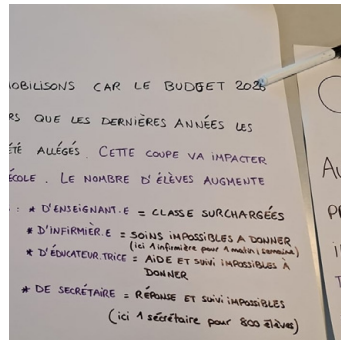 MOBILISONS CAR LE BUDGET 2026
RS QUE LES DERNIÈRES ANNÉES LES
ÉTÉ ALLÉGÉS. CETTE COUPE VA IMPACTER
ÉCOLE. LE NOMBRE D'ÉLÈVES AUGMENTE
: * D'ENSEIGNANT.E = CLASSE SURCHARGÉES
* D'INFIRMIER.E = SOINS IMPOSSIBLES A DONNER
(ici 1 infirmière pour 1 matin/semaine)
* D'ÉDUCATEUR.TRICE = AIDE ET SUIVI IMPOSSIBLES À
DONNER
* DE SECRÉTAIRE = RÉPONSE ET SUIVI IMPOSSIBLES
(ici 1 sécrétaire pour 800 élèves)